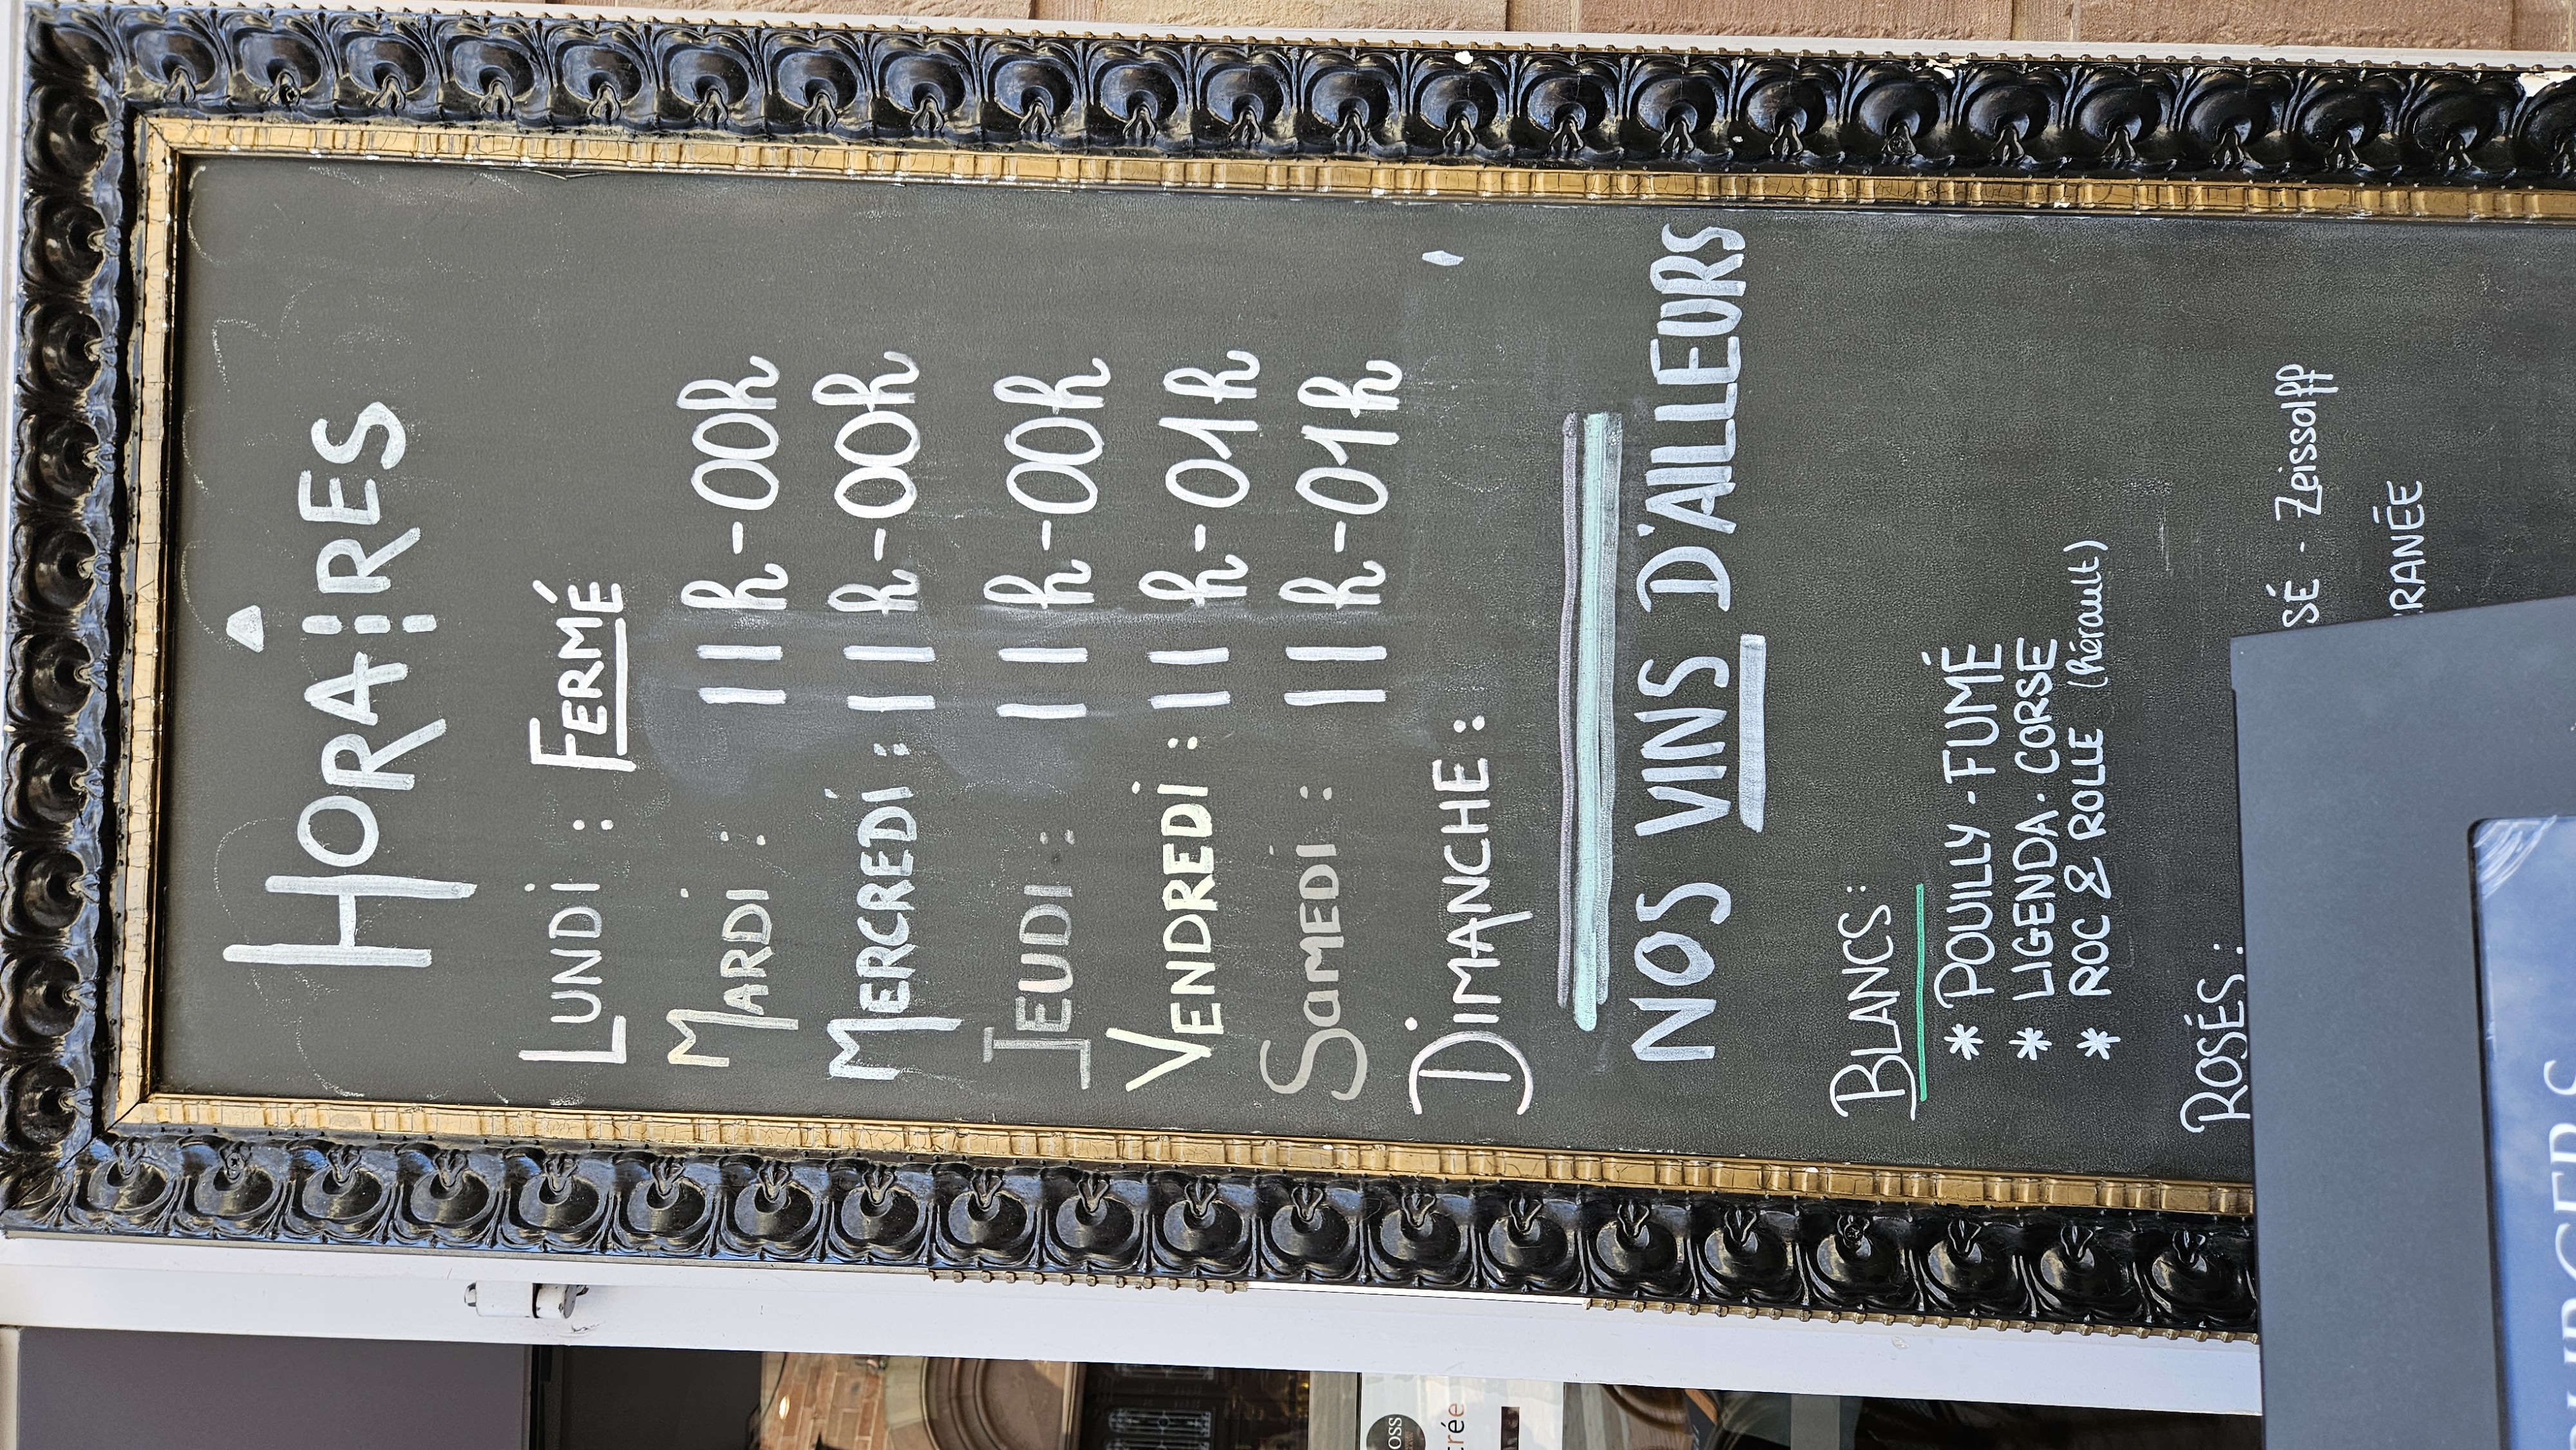 HORAiRES
LUNDi : FERMÉ
MARDi : 11h-00h
MERCREDi : 11h-00h
JEUDi : 11h-00h
VENDREDi : 11h-01h
SaMEDi : 11h-01h
DiMANCHE :
NOS VINS D'AILLEURS
BLANCS :
* POUILLY - FUMÉ
* LIGENDA . CORSE
* ROC & ROLLE (hérault)
ROSÉS :
SÉ - Zeissolff
RANÉE
OSS